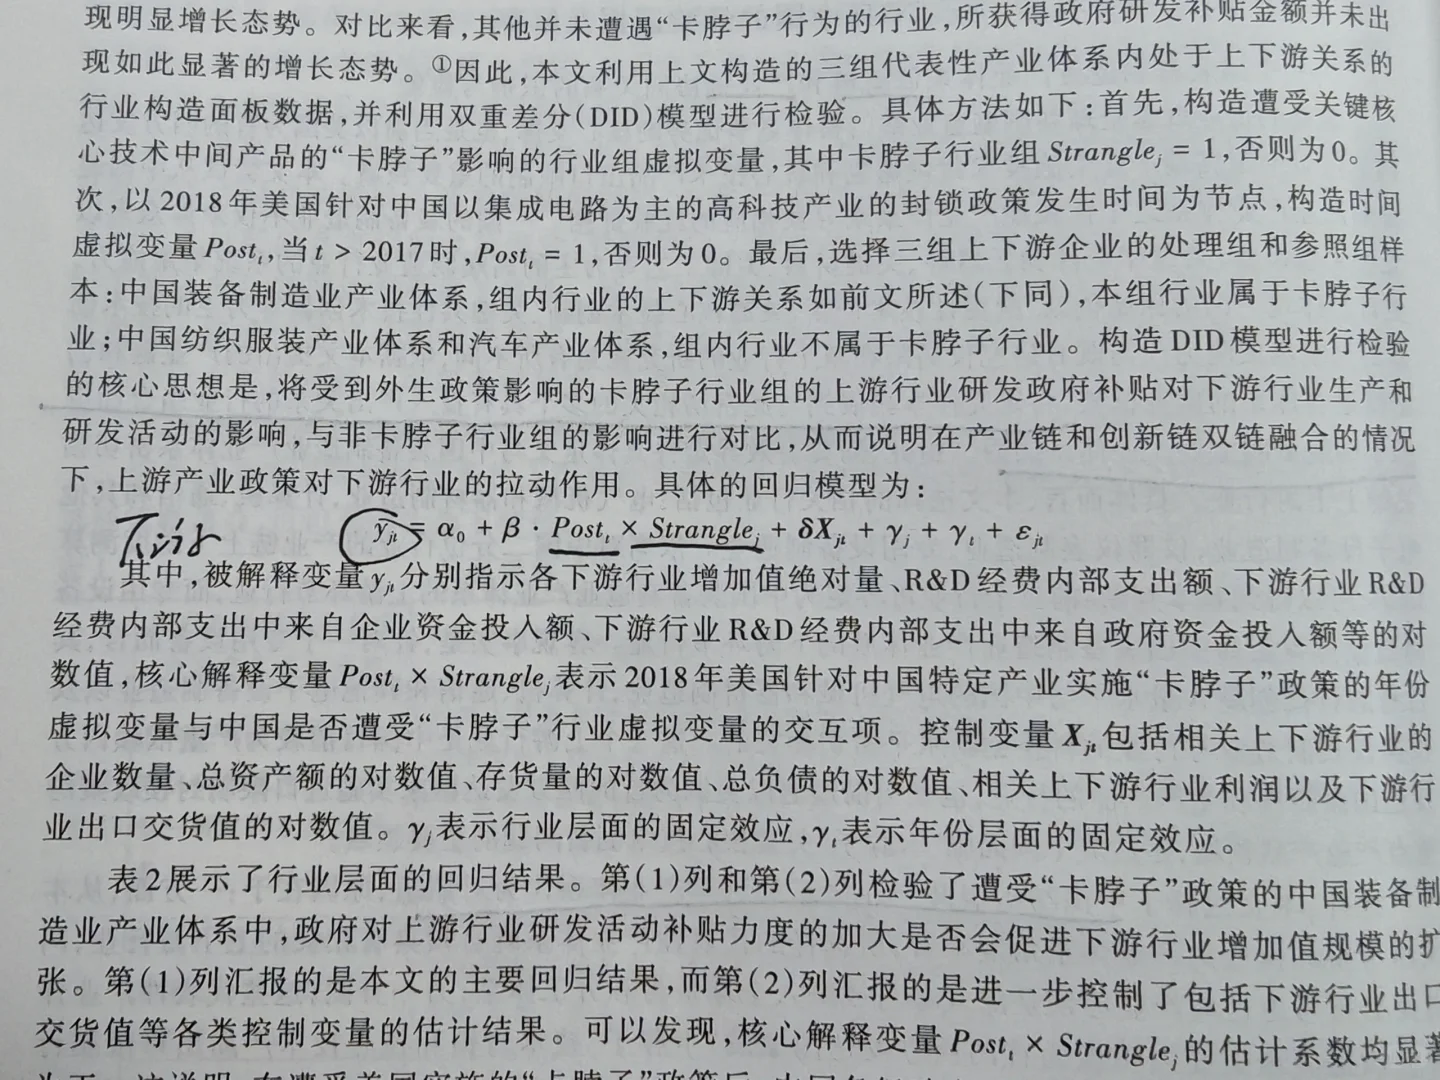 现明显增长态势。对比来看,其他并未遭遇“卡脖子”行为的行业,所获得政府研发补贴金额并未出
现如此显著的增长态势。①因此,本文利用上文构造的三组代表性产业体系内处于上下游关系的
行业构造面板数据,并利用双重差分(DID)模型进行检验。具体方法如下:首先,构造遭受关键核
心技术中间产品的“卡脖子”影响的行业组虚拟变量,其中卡脖子行业组 Strangle_j = 1,否则为0。其
次,以2018年美国针对中国以集成电路为主的高科技产业的封锁政策发生时间为节点,构造时间
虚拟变量 Post_t,当 t > 2017时,Post_t = 1,否则为0。最后,选择三组上下游企业的处理组和参照组样
本:中国装备制造业产业体系,组内行业的上下游关系如前文所述(下同),本组行业属于卡脖子行
业;中国纺织服装产业体系和汽车产业体系,组内行业不属于卡脖子行业。构造DID模型进行检验
的核心思想是,将受到外生政策影响的卡脖子行业组的上游行业研发政府补贴对下游行业生产和
研发活动的影响,与非卡脖子行业组的影响进行对比,从而说明在产业链和创新链双链融合的情况
下,上游产业政策对下游行业的拉动作用。具体的回归模型为:
下游 y_jt = α_0 + β · Post_t × Strangle_j + δX_jt + γ_j + γ_t + ε_jt
其中,被解释变量 y_jt 分别指示各下游行业增加值绝对量、R&D经费内部支出额、下游行业R&D
经费内部支出中来自企业资金投入额、下游行业R&D经费内部支出中来自政府资金投入额等的对
数值,核心解释变量 Post_t × Strangle_j 表示2018年美国针对中国特定产业实施“卡脖子”政策的年份
虚拟变量与中国是否遭受“卡脖子”行业虚拟变量的交互项。控制变量 X_jt 包括相关上下游行业的
企业数量、总资产额的对数值、存货量的对数值、总负债的对数值、相关上下游行业利润以及下游行
业出口交货值的对数值。γ_j 表示行业层面的固定效应,γ_t 表示年份层面的固定效应。
表2展示了行业层面的回归结果。第(1)列和第(2)列检验了遭受“卡脖子”政策的中国装备制
造业产业体系中,政府对上游行业研发活动补贴力度的加大是否会促进下游行业增加值规模的扩
张。第(1)列汇报的是本文的主要回归结果,而第(2)列汇报的是进一步控制了包括下游行业出口
交货值等各类控制变量的估计结果。可以发现,核心解释变量 Post_t × Strangle_j 的估计系数均显著